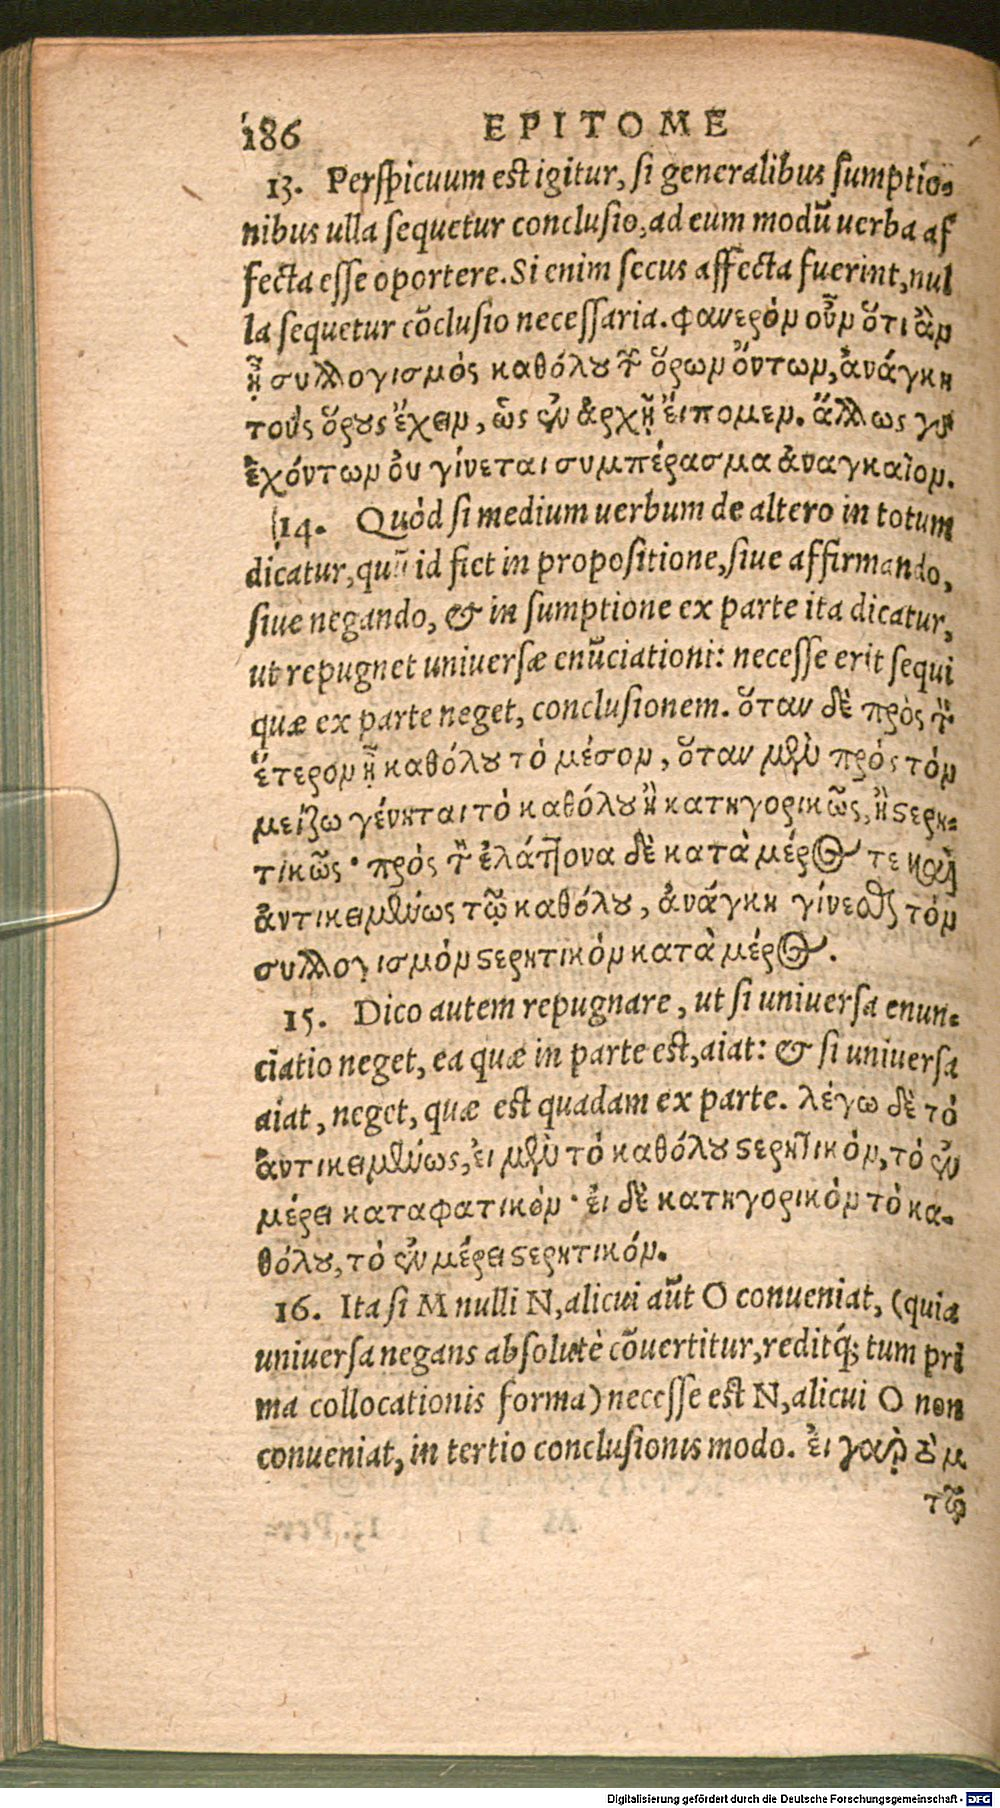 186 EPITOME
13. Perspicuum est igitur, si generalibus sumptio-
nibus ulla sequetur conclusio, ad eum modũ uerba af
fecta esse oportere. Si enim secus affecta fuerint, nul
la sequetur cõclusio necessaria. φανερὸν οὖν ὅτι ἂν
ᾖ συλλογισμὸς καθόλου τῶν ὅρων ὄντων, ἀνάγκη
τοὺς ὅρους ἔχειν, ὡς ἐν ἀρχῇ εἴπομεν. ἄλλως γὰρ
ἐχόντων οὐ γίνεται συμπέρασμα ἀναγκαῖον.
14. Quòd si medium uerbum de altero in totum
dicatur, quũ id fiet in propositione, siue affirmando,
siue negando, & in sumptione ex parte ita dicatur,
ut repugnet uniuersæ enũciationi: necesse erit sequi
quæ ex parte neget, conclusionem. ὅταν δὲ πρὸς τὸν
ἕτερον ᾖ καθόλου τὸ μέσον, ὅταν μὲν πρὸς τὸν
μείζω γένηται τὸ καθόλου ἢ κατηγορικῶς, ἢ στερη-
τικῶς· πρὸς τὸν ἐλάττονα δὲ κατὰ μέρος τε καὶ
ἀντικειμένως τῷ καθόλου, ἀνάγκη γίνεσθαι τὸν
συλλογισμὸν στερητικὸν κατὰ μέρος.
15. Dico autem repugnare, ut si uniuersa enun-
ciatio neget, ea quæ in parte est, aiat: & si uniuersa
aiat, neget, quæ est quadam ex parte. λέγω δὲ τὸ
ἀντικειμένως, εἰ μὲν τὸ καθόλου στερητικὸν, τὸ ἐν
μέρει καταφατικὸν· εἰ δὲ κατηγορικὸν τὸ κα-
θόλου, τὸ ἐν μέρει στερητικόν.
16. Ita si M nulli N, alicui aũt O conueniat, (quia
uniuersa negans absolutè cõuertitur, reditq́; tum pri
ma collocationis forma) necesse est N, alicui O non
conueniat, in tertio conclusionis modo. εἰ γὰρ τὸ μ
τῷ
Digitalisierung gefördert durch die Deutsche Forschungsgemeinschaft - DFG